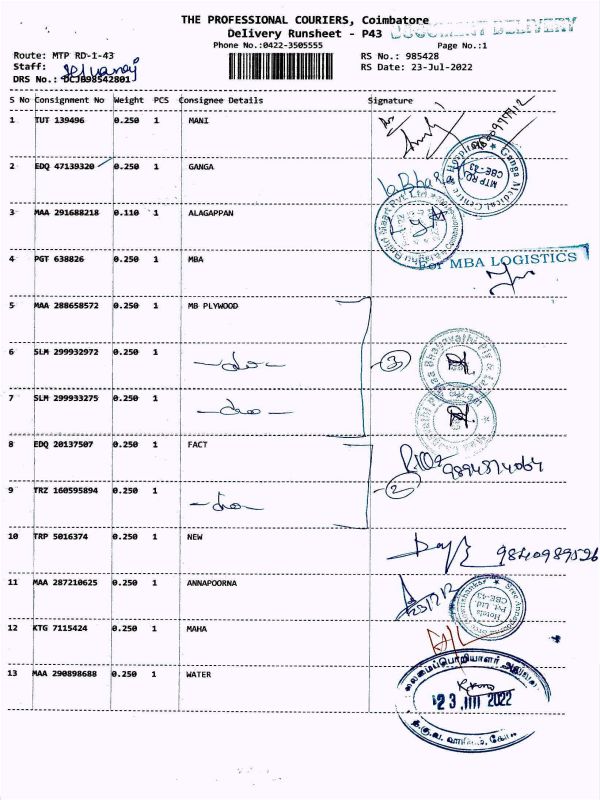 THE PROFESSIONAL COURIERS, Coimbatore
Delivery Runsheet - P43
DOCUMENT DELIVERY
Phone No.:0422-3505555
Page No.:1
Route: MTP RD-I-43
RS No.: 985428
Staff:
RS Date: 23-Jul-2022
DRS No.: DCJB98542801
S No Consignment No Weight PCS Consignee Details Signature
1 TUT 139496 0.250 1 MANI
2 EDQ 47139320 0.250 1 GANGA
Ganga Medical Centre & Hospitals
MTP RD
CBE-43
3 MAA 291688218 0.110 1 ALAGAPPAN
4 PGT 638826 0.250 1 MBA
For MBA LOGISTICS
5 MAA 288658572 0.250 1 MB PLYWOOD
6 SLM 299932972 0.250 1 -do- 3
7 SLM 299933275 0.250 1 -do-
8 EDQ 20137507 0.250 1 FACT
9894874064
9 TRZ 160595894 0.250 1 -do- 2
10 TRP 5016374 0.250 1 NEW
9840989526
11 MAA 287210625 0.250 1 ANNAPOORNA
Hotels
Pvt. Ltd
CBE-43
12 KTG 7115424 0.250 1 MAHA
13 MAA 290898688 0.250 1 WATER
தலைமைப்பொறியாளர்
23 JUL 2022